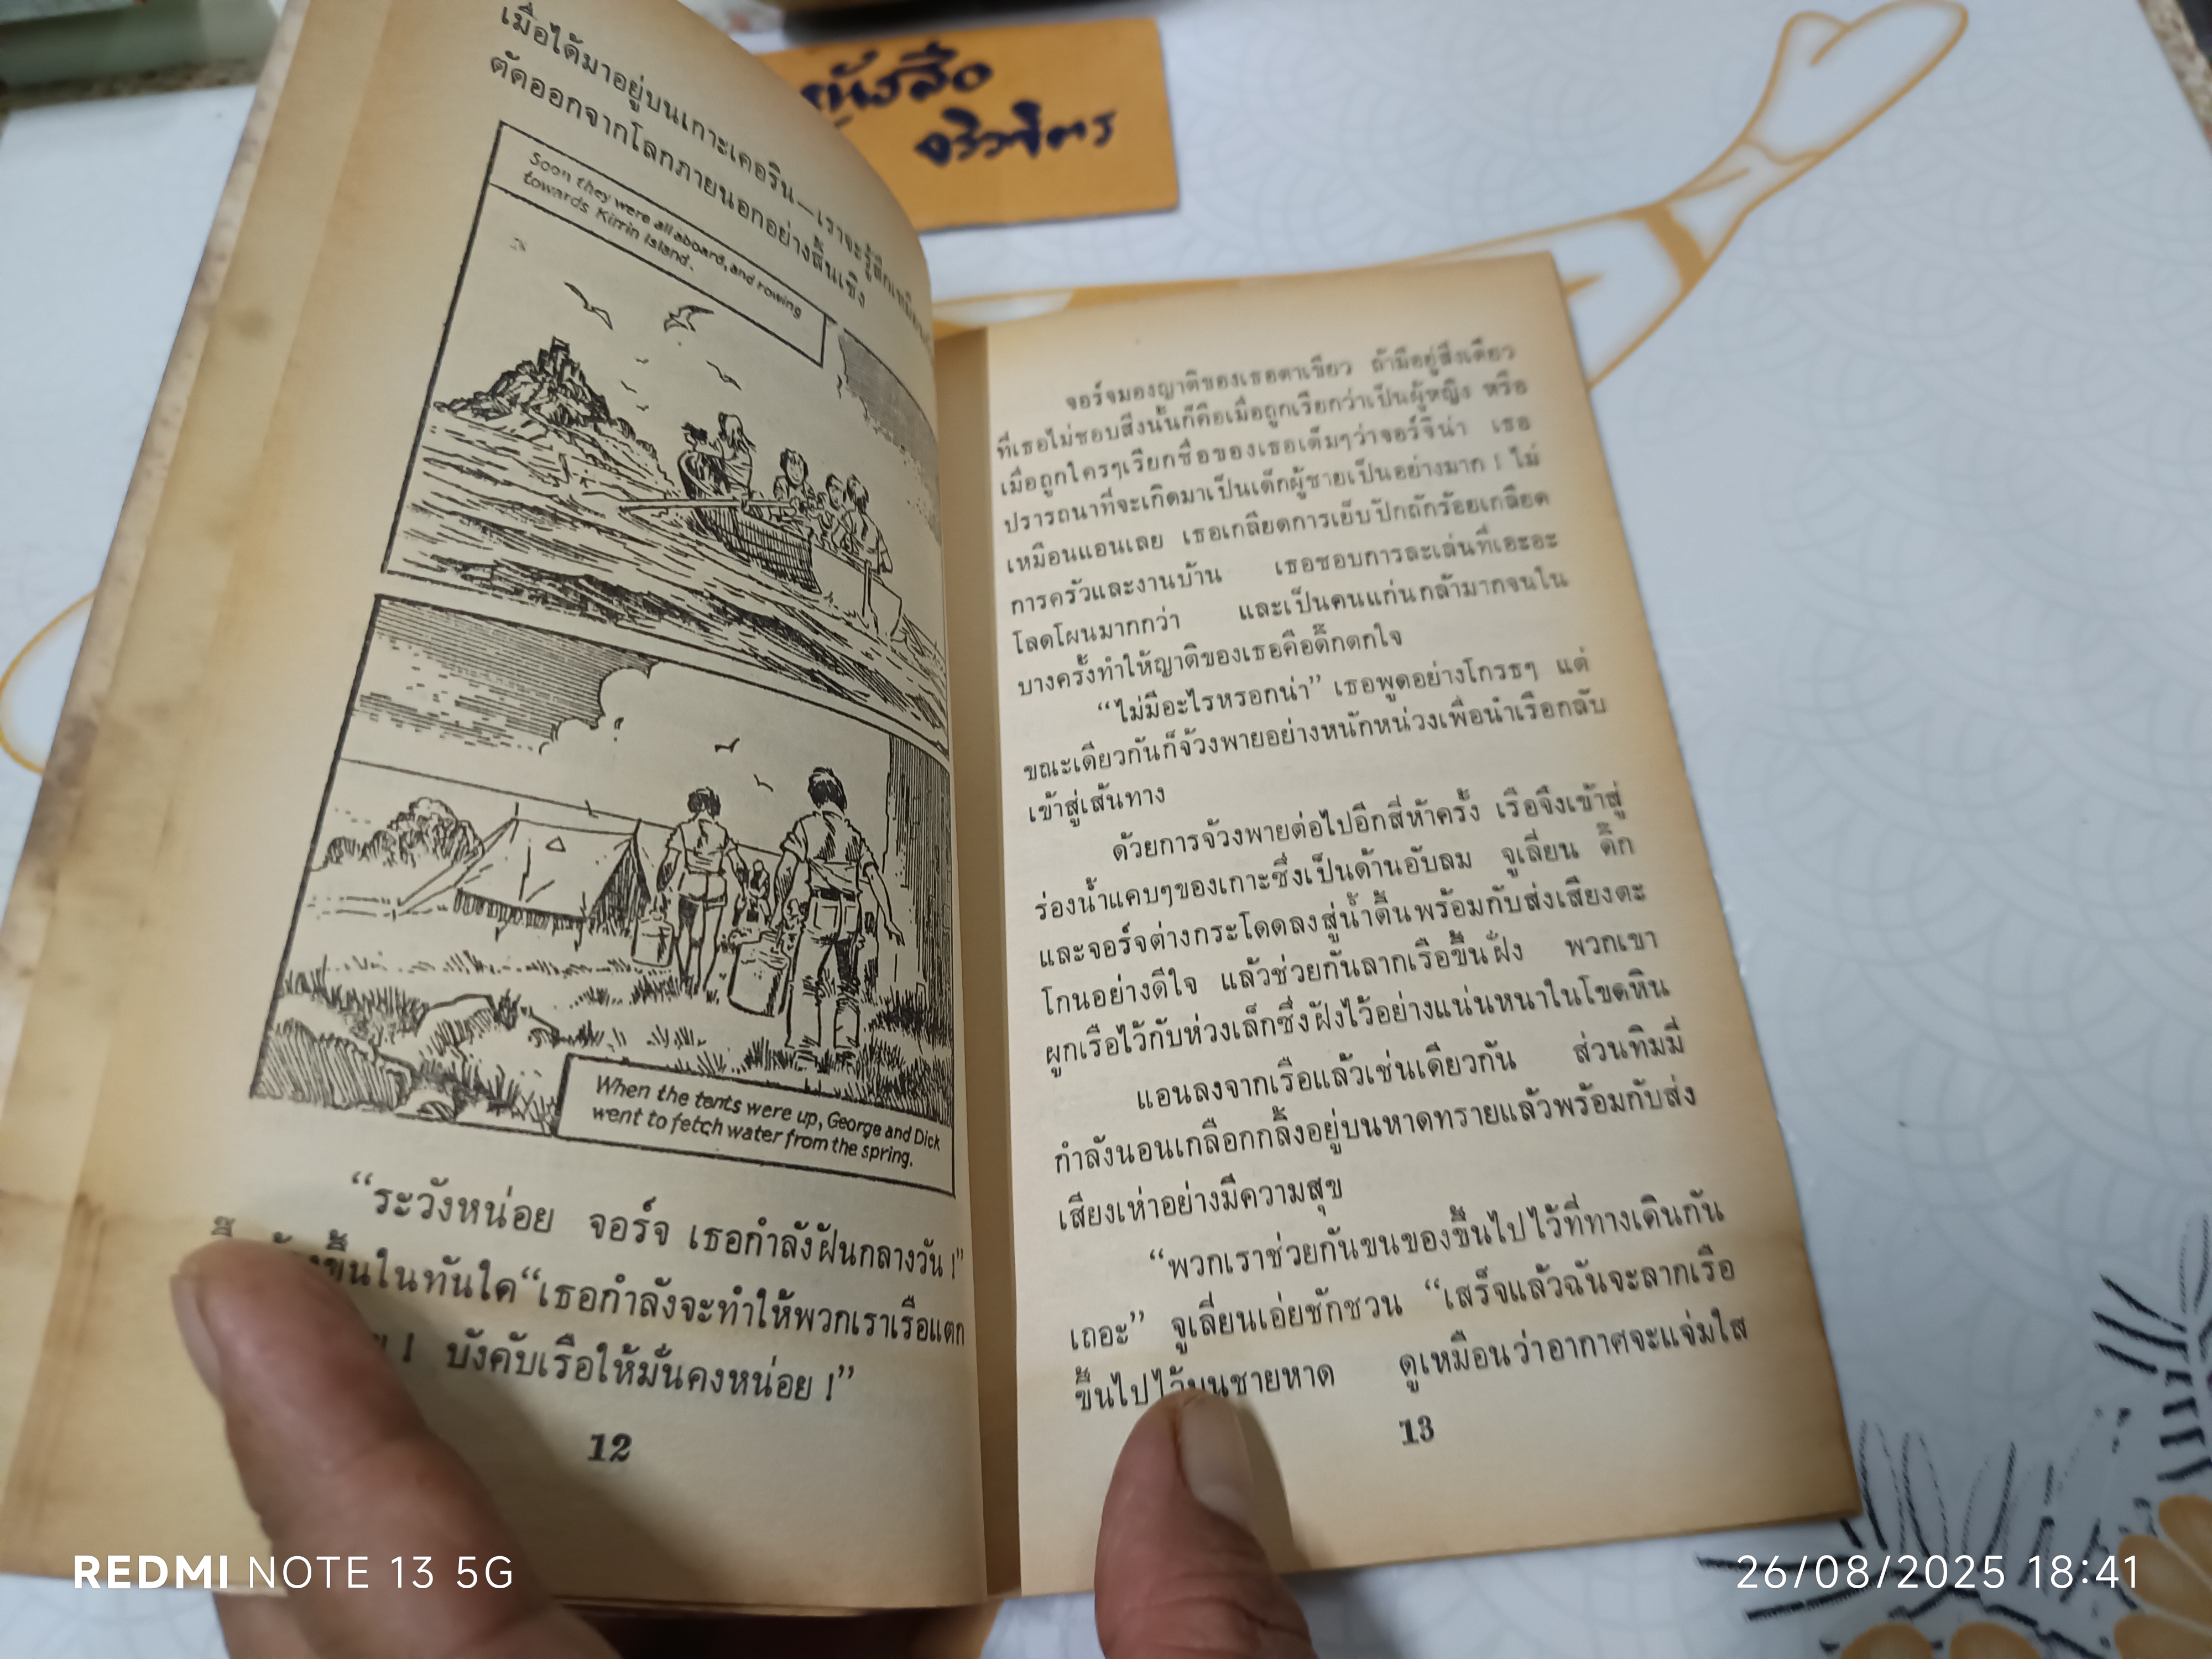 หนังสือ
จริวจิตร
เมื่อได้มาอยู่บนเกาะเคอริน—เราจะรู้สึกเหมือน
ตัดออกจากโลกภายนอกอย่างสิ้นเชิง
Soon they were all aboard, and rowing
towards Kirrin Island.
When the tents were up, George and Dick
went to fetch water from the spring.
“ระวังหน่อย จอร์จ เธอกำลังฝันกลางวัน !”
ขึ้นในทันใด “เธอกำลังจะทำให้พวกเราเรือแตก
! บังคับเรือให้มั่นคงหน่อย !”
12
จอร์จมองญาติของเธอตาเขียว ถ้ามีอยู่สิ่งเดียว
ที่เธอไม่ชอบสิ่งนั้นก็คือเมื่อถูกเรียกว่าเป็นผู้หญิง หรือ
เมื่อถูกใครๆเรียกชื่อของเธอเต็มๆว่าจอร์จิน่า เธอ
ปรารถนาที่จะเกิดมาเป็นเด็กผู้ชายเป็นอย่างมาก ! ไม่
เหมือนแอนเลย เธอเกลียดการเย็บปักถักร้อยเกลียด
การครัวและงานบ้าน เธอชอบการละเล่นที่เอะอะ
โลดโผนมากกว่า และเป็นคนแก่นกล้ามากจนใน
บางครั้งทำให้ญาติของเธอคือดิ๊กตกใจ
“ไม่มีอะไรหรอกน่า” เธอพูดอย่างโกรธๆ แต่
ขณะเดียวกันก็จ้วงพายอย่างหนักหน่วงเพื่อนำเรือกลับ
เข้าสู่เส้นทาง
ด้วยการจ้วงพายต่อไปอีกสี่ห้าครั้ง เรือจึงเข้าสู่
ร่องน้ำแคบๆของเกาะซึ่งเป็นด้านอับลม จูเลี่ยน ดิ๊ก
และจอร์จต่างกระโดดลงสู่น้ำตื้นพร้อมกับส่งเสียงตะ
โกนอย่างดีใจ แล้วช่วยกันลากเรือขึ้นฝั่ง พวกเขา
ผูกเรือไว้กับห่วงเล็กซึ่งฝังไว้อย่างแน่นหนาในโขดหิน
แอนลงจากเรือแล้วเช่นเดียวกัน ส่วนทิมมี่
กำลังนอนเกลือกกลิ้งอยู่บนหาดทรายแล้วพร้อมกับส่ง
เสียงเห่าอย่างมีความสุข
“พวกเราช่วยกันขนของขึ้นไปไว้ที่ทางเดินกัน
เถอะ” จูเลี่ยนเอ่ยชักชวน “เสร็จแล้วฉันจะลากเรือ
ขึ้นไปไว้บนชายหาด ดูเหมือนว่าอากาศจะแจ่มใส
13
REDMI NOTE 13 5G
26/08/2025 18:41